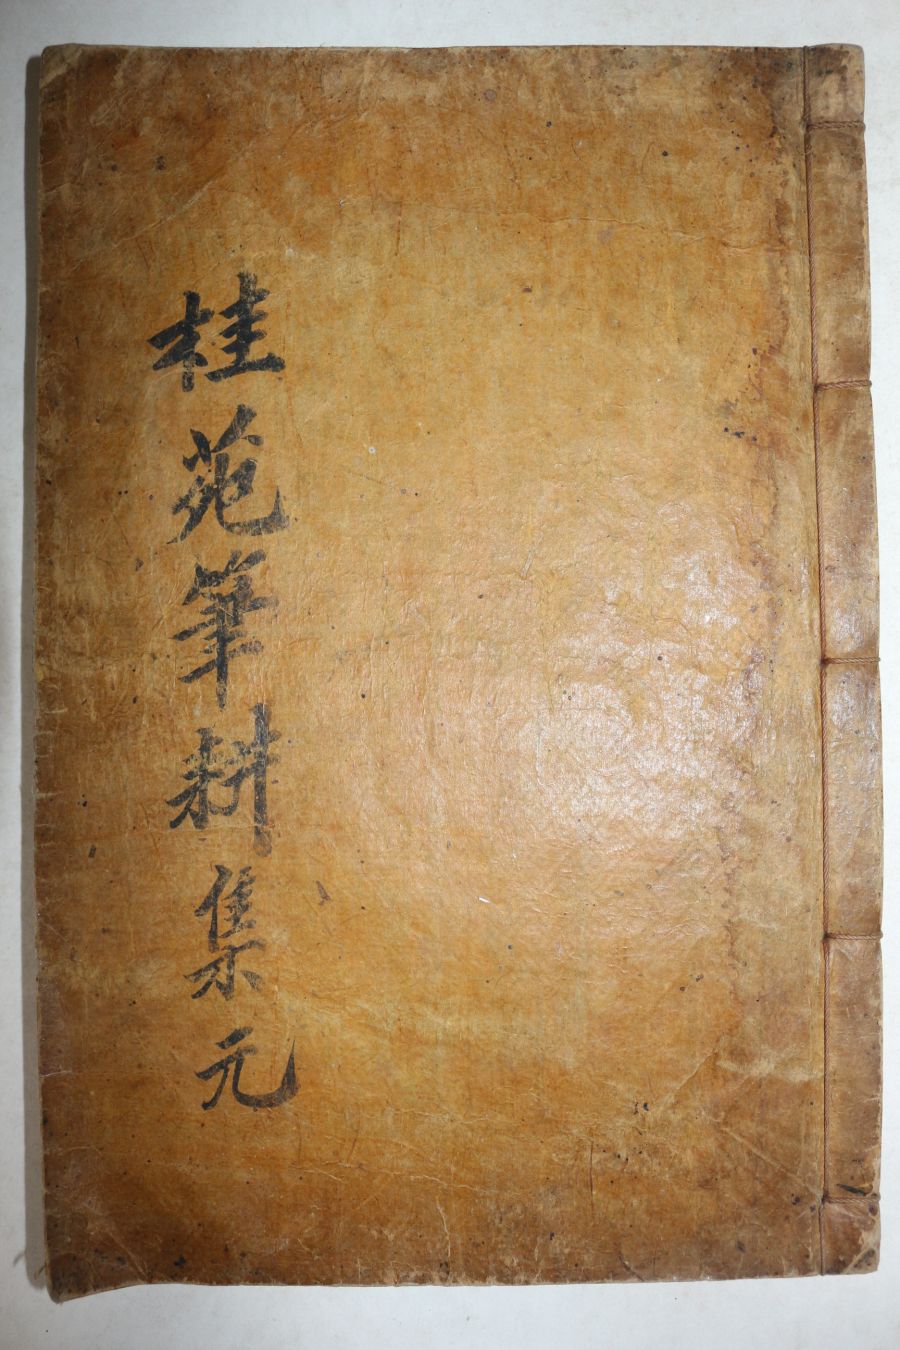 桂苑筆耕集元